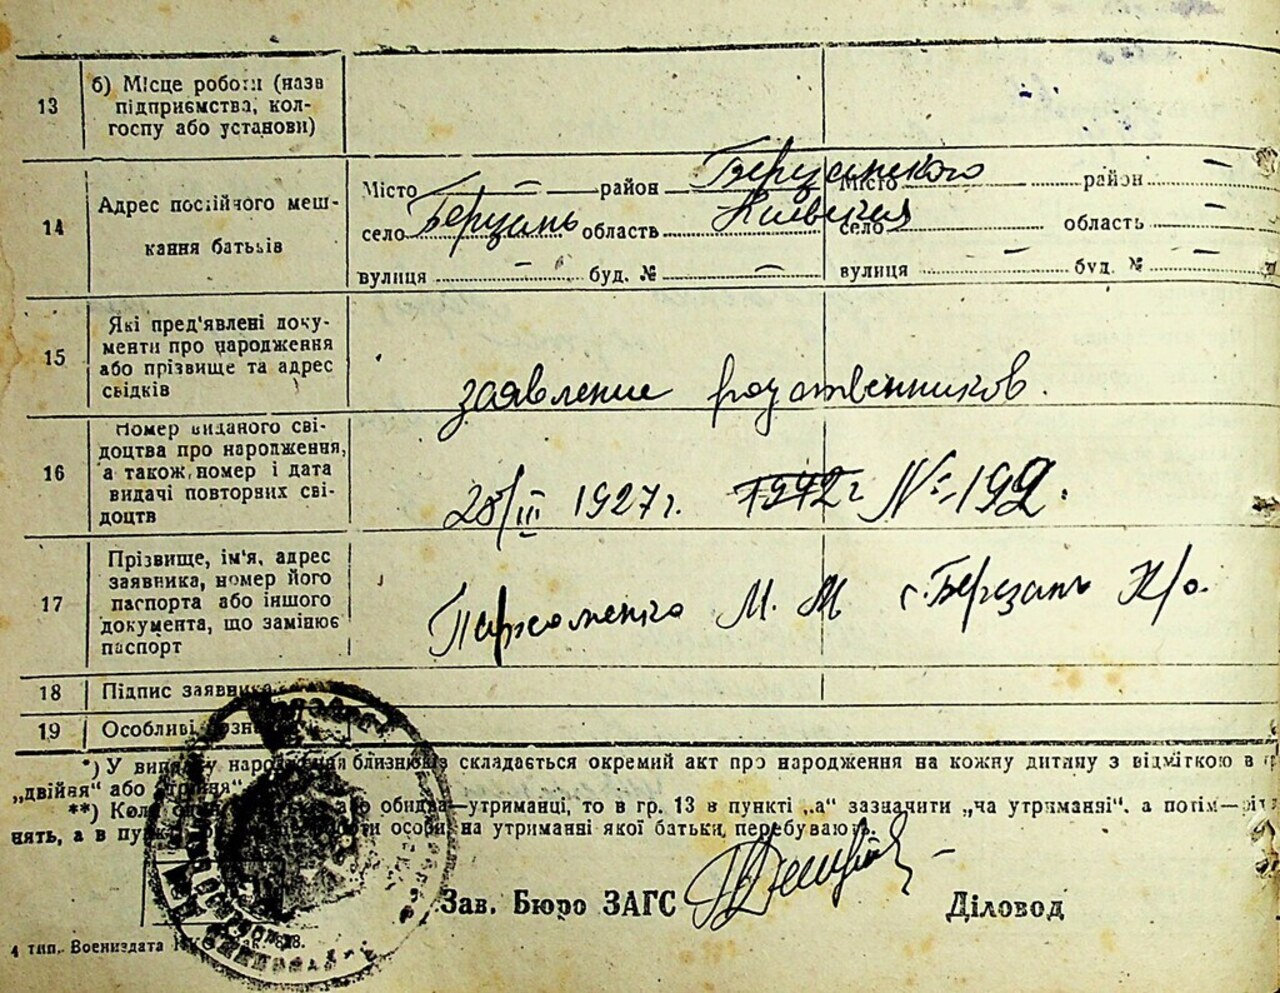 13
б) Місце роботи (назв
підприємства, кол-
госпу або установи)
14
Адрес постійного меш-
кання батьків
Місто — район Березанского
село Березань область Киевская
вулиця — буд. № —
Місто район —
село область —
вулиця — буд. № —
15
Які пред'явлені доку-
менти про народження
або прізвище та адрес
свідків
заявление родственников.
16
Номер виданого сві-
доцтва про народження,
а також номер і дата
видачі повторних сві-
доцтв
28/III 1927г. 1942г №=192.
17
Прізвище, ім'я, адрес
заявника, номер його
паспорта або іншого
документа, що замінює
паспорт
Пархоменко М. М с. Березань
18
Підпис заявника
19
Особливі
*) У випадку народження близнюків складається окремий акт про народження на кожну дитину з відміткою в
„двійня“ або „трійня“
**) Коли або обидва—утриманці, то в гр. 13 в пункті „а“ зазначити „на утриманні“, а потім—
нять, а в пункті особи, на утриманні якої батьки перебувають.
Зав. Бюро ЗАГС
Діловод
4 тип. Воениздата